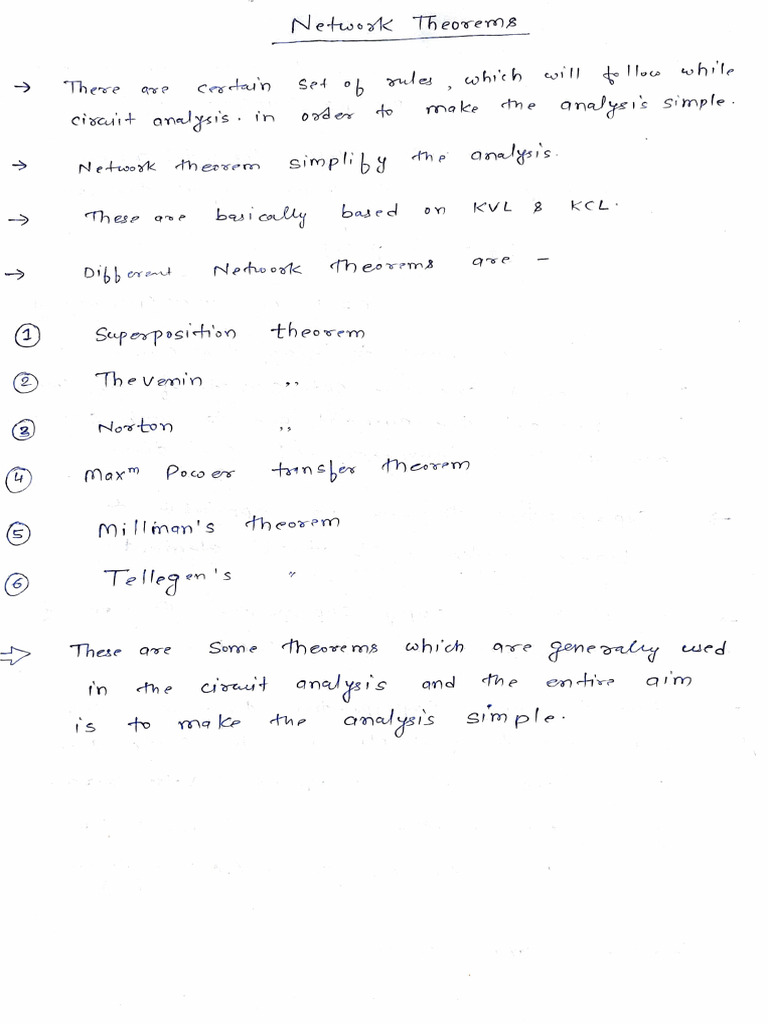 Network Theorems
→ There are certain set of rules, which will follow while
circuit analysis. in order to make the analysis simple.
→ Network theorem simplify the analysis.
→ These are basically based on KVL & KCL.
→ Different Network theorems are –
① Superposition theorem
② Thevenin ,,
③ Norton ,,
④ Maxᵐ Power transfer theorem
⑤ Millman's theorem
⑥ Tellegen's "
⇒ These are some theorems which are generally used
in the circuit analysis and the entire aim
is to make the analysis simple.